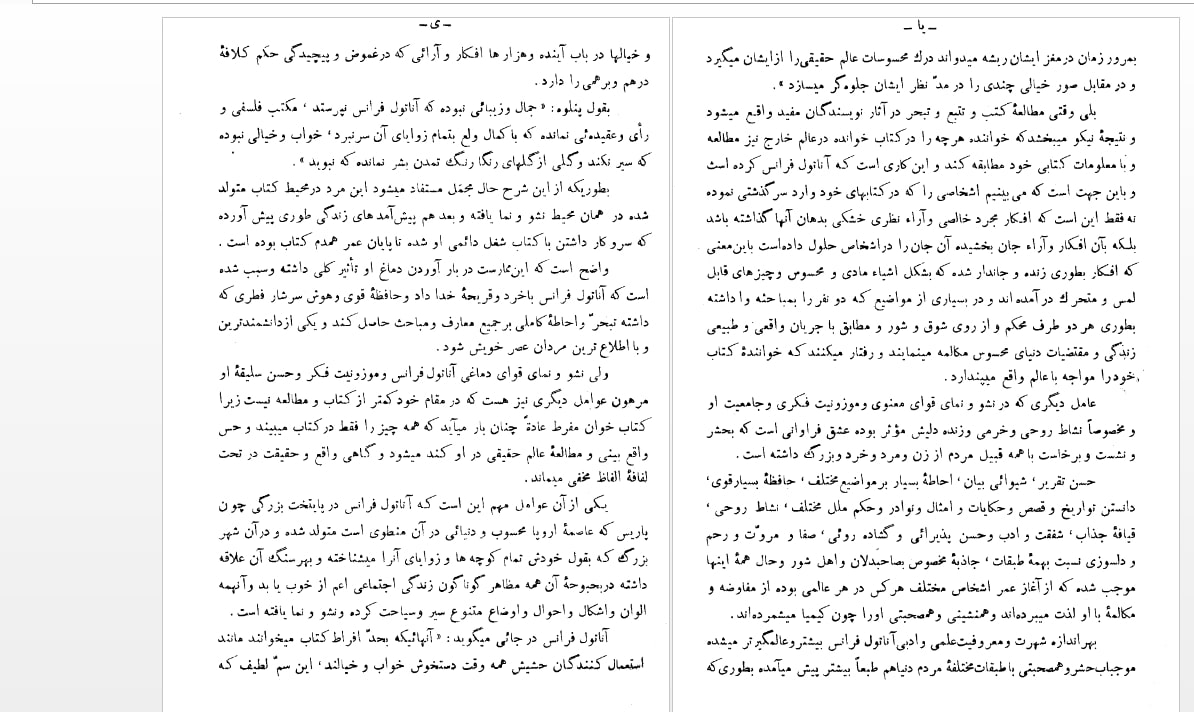 ـ ی ـ
و خیالها در باب آینده وهزارها افکار و آرائی که درغموض و پیچیدگی حکم کلافهٔ
درهم وبرهمی را دارد .
بقول پنلوه: « جمال وزیبائی نبوده که آناتول فرانس نپرستد ، مکتب فلسفی و
رأی وعقیده‌ئی نمانده که باکمال ولع بتمام زوایای آن سرنبرد ، خواب وخیالی نبوده
که سیر نکند وگلی ازگلهای رنگا رنگ تمدن بشر نمانده که نبوید » .
بطوریکه از این شرح حال مجمل مستفاد میشود این مرد درمحیط کتاب متولد
شده در همان محیط نشو و نما یافته و بعد هم پیش‌آمدهای زندگی طوری پیش آورده
که سروکار داشتن باکتاب شغل دائمی او شده تاپایان عمر همدم کتاب بوده است .
واضح است که این‌ممارست در بار آوردن دماغ او تأثیر کلی داشته وسبب شده
است که آناتول فرانس باخرد وقریحهٔ خدا داد وحافظهٔ قوی وهوش سرشار فطری که
داشته تبحرّ واحاطهٔ کاملی برجمیع معارف ومباحث حاصل کند و یکی ازدانشمندترین
و با اطلاع ترین مردان عصر خویش شود .
ولی نشو و نمای قوای دماغی آناتول فرانس وموزونیت فکر وحسن سلیقهٔ او
مرهون عوامل دیگری نیز هست که در مقام خود کمتر از کتاب و مطالعه نیست زیرا
کتاب خوان مفرط عادةً چنان بار میآید که همه چیز را فقط درکتاب میبیند و حس
واقع بینی و مطالعهٔ عالم حقیقی در او کند میشود و گاهی واقع و حقیقت در تحت
لفافهٔ الفاظ مخفی میماند .
یکی از آن عوامل مهم این است که آناتول فرانس در پایتخت بزرگی چون
پاریس که عاصمهٔ اروپا محسوب و دنیائی در آن منطوی است متولد شده و درآن شهر
بزرگ که بقول خودش تمام کوچه ها و زوایای آنرا میشناخته و بهر سنگ آن علاقه
داشته دربحبوحهٔ آن همه مظاهر گوناگون زندگی اجتماعی اعم از خوب یا بد وآنهمه
الوان واشکال واحوال واوضاع متنوع سیر وسیاحت کرده ونشو و نما یافته است .
آناتول فرانس در جائی میگوید: « آنهائیکه بحدّ افراط کتاب میخوانند مانند
استعمال کنندگان حشیش همه وقت دستخوش خواب و خیالند ، این سمّ لطیف که
ـ یا ـ
بمرور زمان درمغز ایشان ریشه میدواند درك محسوسات عالم حقیقی را از ایشان میگیرد
و در مقابل صور خیالی چندی را در مدّ نظر ایشان جلوه‌گر میسازد » .
بلی وقتی مطالعهٔ کتب و تتبع و تبحر در آثار نویسندگان مفید واقع میشود
و نتیجهٔ نیکو میبخشد که خواننده هرچه را درکتاب خوانده درعالم خارج نیز مطالعه
و با معلومات کتابی خود مطابقه کند و این کاری است که آناتول فرانس کرده است
و باین جهت است که می‌بینیم اشخاصی را که درکتابهای خود وارد سرگذشتی نموده
نه فقط این است که افکار مجرد خالصی وآراء نظری خشکی بدهان آنها گذاشته باشد
بلکه بآن افکار وآراء جان بخشیده آن جان را دراشخاص حلول داده‌است باین‌معنی
که افکار بطوری زنده و جاندار شده که بشکل اشیاء مادی و محسوس وچیزهای قابل
لمس و متحرك در آمده اند و در بسیاری از مواضیع که دو نفر را بمباحثه وا داشته
بطوری هر دو طرف محکم و از روی شوق و شور و مطابق با جریان واقعی و طبیعی
زندگی و مقتضیات دنیای محسوس مکالمه مینمایند و رفتار میکنند که خوانندهٔ کتاب
خودرا مواجه با عالم واقع میپندارد .
عامل دیگری که در نشو و نمای قوای معنوی وموزونیت فکری وجامعیت او
و مخصوصاً نشاط روحی وخرمی وزنده دلیش مؤثر بوده عشق فراوانی است که بحشر
و نشست وبرخاست با همه قبیل مردم از زن ومرد وخرد وبزرگ داشته است .
حسن تقریر ، شیوائی بیان ، احاطهٔ بسیار برمواضیع مختلف ، حافظهٔ بسیارقوی ،
دانستن تواریخ و قصص وحکایات و امثال ونوادر وحکم ملل مختلف ، نشاط روحی ،
قیافهٔ جذاب ، شفقت و ادب وحسن پذیرائی و گشاده روئی ، صفا و مروّت و رحم
و دلسوزی نسبت بهمهٔ طبقات ، جاذبهٔ مخصوص بصاحبدلان واهل شور وحال همهٔ اینها
موجب شده که از آغاز عمر اشخاص مختلف هرکس در هر عالمی بوده از مفاوضه و
مکالمهٔ با او لذت میبرده‌اند وهمنشینی وهمصحبتی اورا چون کیمیا میشمرده‌اند .
بهر اندازه شهرت ومعروفیت‌علمی وادبی‌آناتول فرانس بیشتر وعالمگیرتر میشده
موجبات‌حشر وهمصحبتی باطبقات‌مختلفهٔ مردم دنیاهم طبعاً بیشتر پیش میآمده بطوری‌که